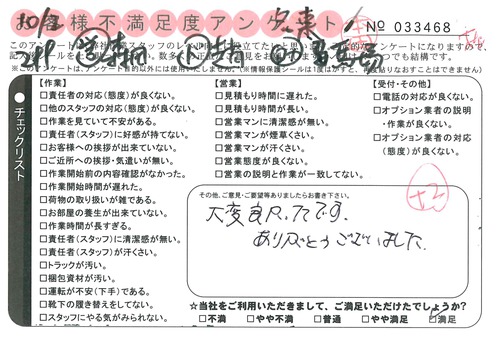 お客様不満足度アンケート
No 033468
チェックリスト
【作業】
□責任者の対応(態度)が良くない。
□他のスタッフの対応(態度)が良くない。
□作業を見ていて不安がある。
□責任者(スタッフ)に好感が持てない。
□お客様への挨拶が出来ていない。
□ご近所への挨拶・気遣いが無い。
□作業開始前の内容確認がなかった。
□作業開始時間が遅れた。
□荷物の取り扱いが雑である。
□お部屋の養生が出来ていない。
□作業時間が長すぎる。
□責任者(スタッフ)に清潔感が無い。
□責任者(スタッフ)が汗くさい。
□トラックが汚い。
□梱包資材が汚い。
□運転が不安(下手)である。
□靴下の履き替えをしてない。
□スタッフにやる気がみられない。
【営業】
□見積もり時間に遅れた。
□見積もり時間が長い。
□営業マンに清潔感が無い。
□営業マンが煙草くさい。
□営業マンが汗くさい。
□営業態度が良くない。
□営業の説明と作業が一致してない。
【受付・その他】
□電話の対応が良くない。
□オプション業者の説明
・作業が良くない。
□オプション業者の対応
(態度)が良くない。
その他、ご意見・ご要望等ありましたらお書き下さい。
大変良かったです。
ありがとうございました.
☆当社をご利用いただきまして、ご満足いただけたでしょうか?
□不満 □やや不満 □普通 □やや満足 □満足